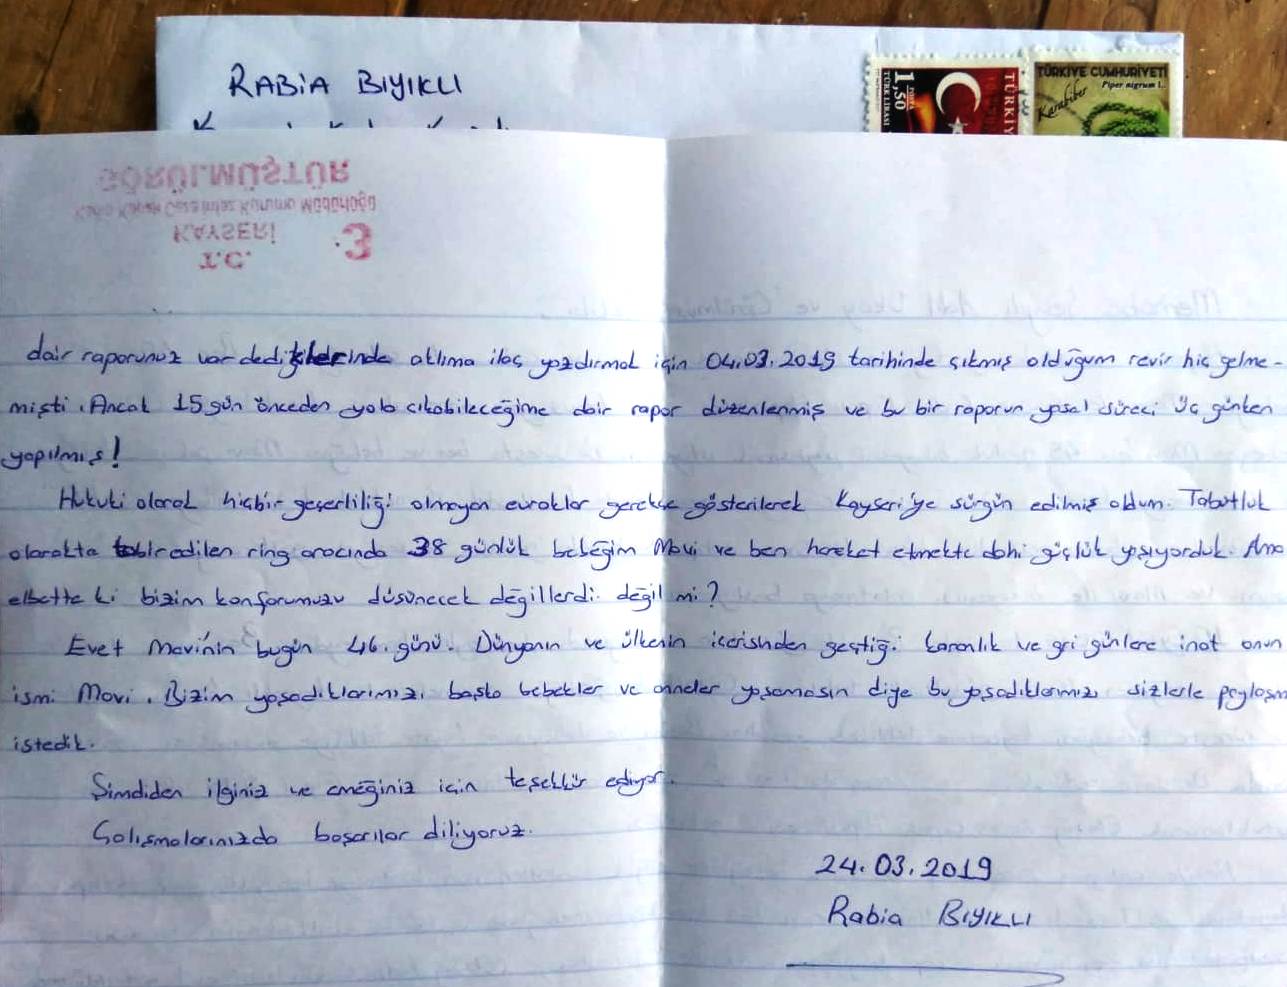 RABİA BIYIKLI
1,50
TÜRK LİRASI
TÜRKİYE CUMHURİYETİ
Piper nigrum L.
Karabiber
GÖRÜLMÜŞTÜR
Kadın Kapalı Ceza İnfaz Kurumu Müdürlüğü
KAYSERİ
T.C.
3
dair raporunuz var dediklerinde aklıma ilaç yazdırmak için 04.03.2019 tarihinde çıkmış olduğum revir hiç gelme-
mişti. Ancak 15 gün önceden yola çıkabileceğime dair rapor düzenlenmiş ve bu bir raporun yasal süreci üç günken
yapılmış!
Hukuki olarak hiçbir geçerliliği olmayan evraklar gerekçe gösterilerek Kayseri'ye sürgün edilmiş oldum. Tabutluk
olarakta tabir edilen ring aracında 38 günlük bebeğim Mavi ve ben hareket etmekte dahi güçlük yaşıyorduk. Ama
elbette ki bizim konforumuzu düşünecek değillerdi değil mi?
Evet Mavi'nin bugün 46. günü. Dünyanın ve ülkenin içerisinden geçtiği karanlık ve gri günlere inat onun
ismi Mavi. Bizim yaşadıklarımızı başka bebekler ve anneler yaşamasın diye bu yaşadıklarımızı sizlerle paylaşm
istedik.
Şimdiden ilginiz ve emeğiniz için teşekkür ediyor.
Çalışmalarınızda başarılar diliyoruz.
24.03.2019
Rabia BIYIKLI